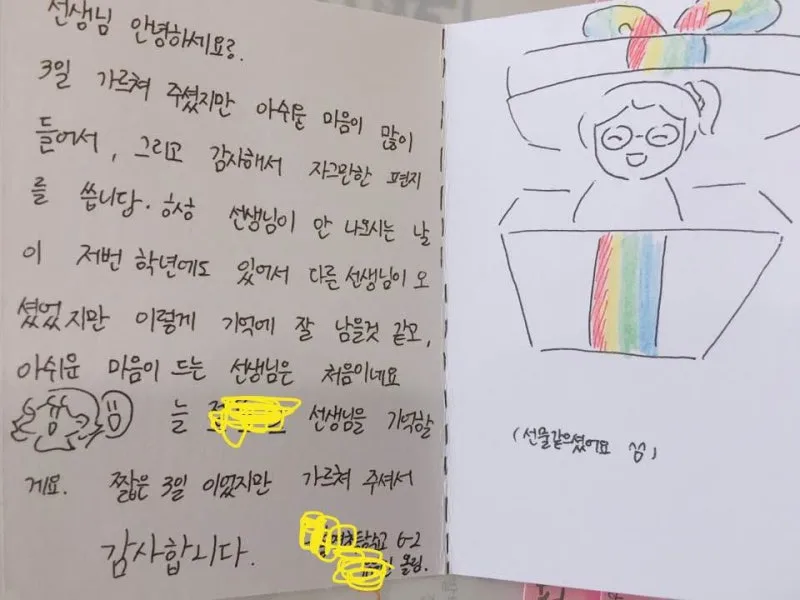 선생님 안녕하세요?
3일 가르쳐 주셨지만 아쉬운 마음이 많이
들어서, 그리고 감사해서 자그만한 편지
를 씁니다. 항상 선생님이 안 나오시는 날
이 저번 학년에도 있어서 다른 선생님이 오
셨었지만 이렇게 기억에 잘 남을것 같고,
아쉬운 마음이 드는 선생님은 처음이네요
늘 선생님을 기억할
게요. 짧은 3일 이었지만 가르쳐 주셔서
감사합니다.
6-2
올림.
(선물같으셨어요 )